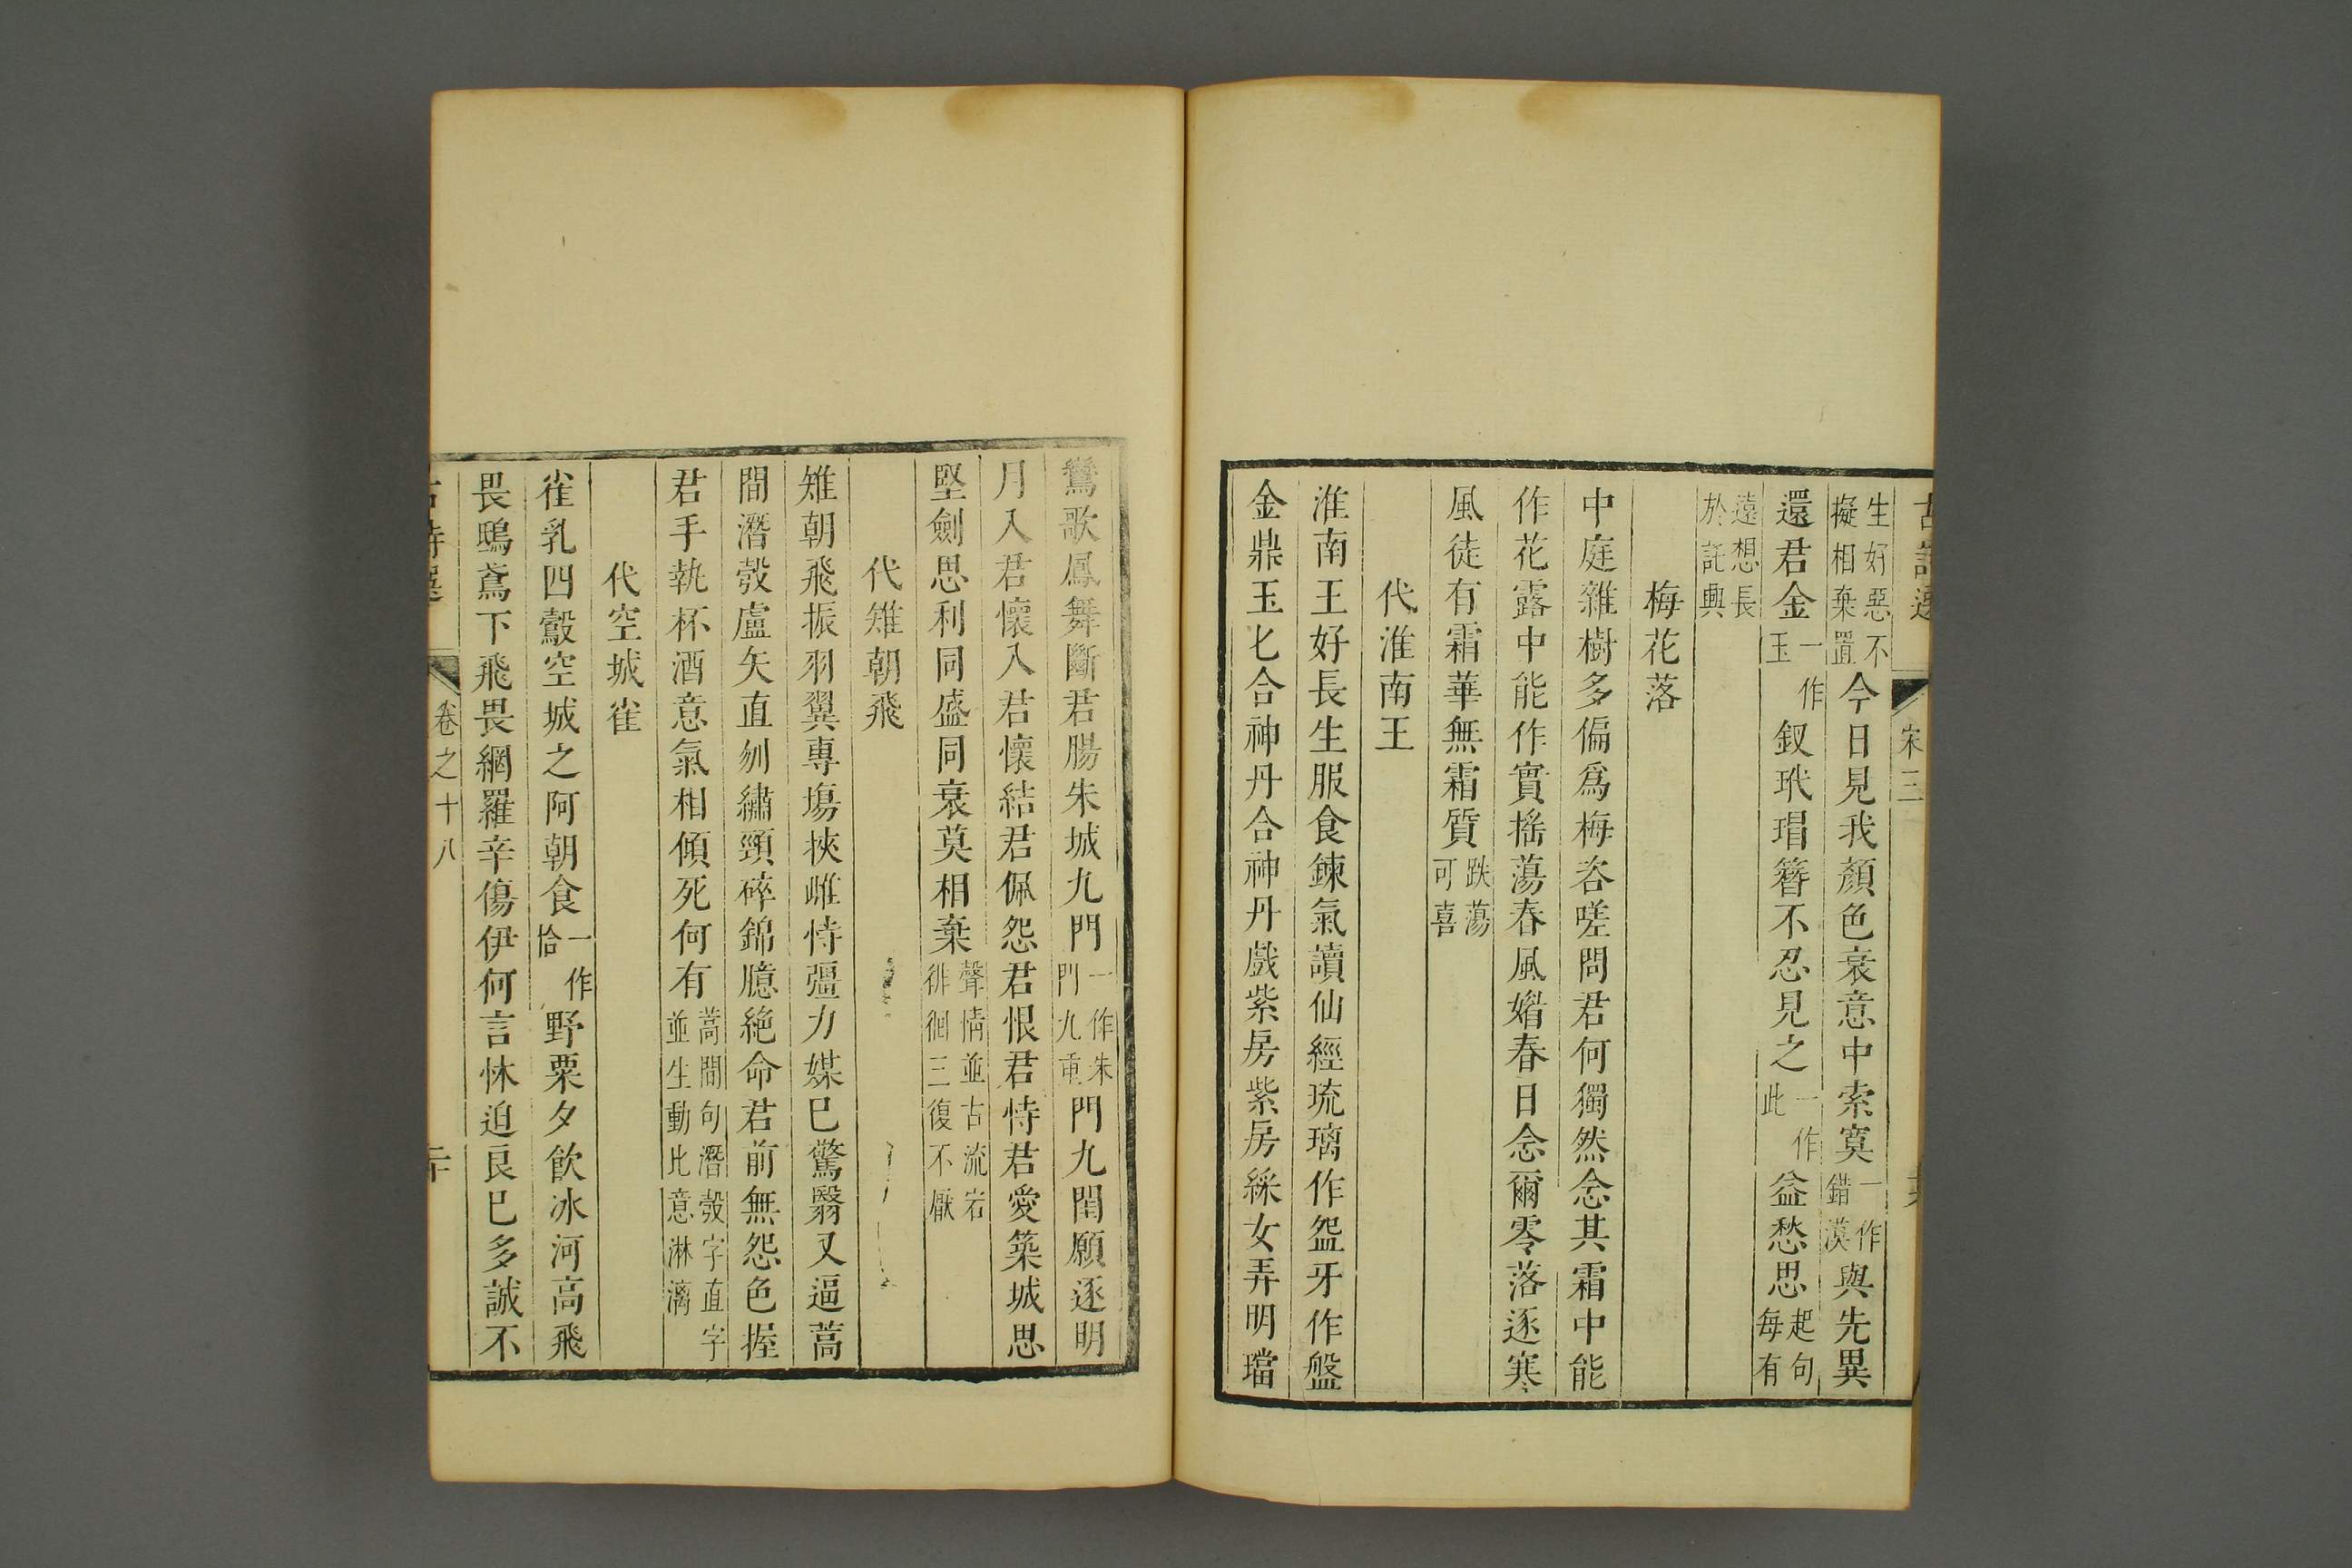 古詩選
宋三
生好惡不擬相棄置今日見我顏色衰意中索寞一作錯漠與先異
還君金一作玉釵玳瑁簪不忍見之一作此益愁思起句每有
遠想長於託興
梅花落
中庭雜樹多偏爲梅咨嗟問君何獨然念其霜中能
作花露中能作實搖蕩春風媚春日念爾零落逐寒
風徒有霜華無霜質跌蕩可喜
代淮南王
淮南王好長生服食鍊氣讀仙經琉璃作盌牙作盤
金鼎玉匕合神丹合神丹戲紫房紫房綵女弄明璫
鸞歌鳳舞斷君腸朱城九門一作朱門九重門九閨願逐明
月入君懷入君懷結君佩怨君恨君恃君愛築城思
堅劍思利同盛同衰莫相棄聲情並古流宕徘徊三復不厭
代雉朝飛
雉朝飛振羽翼專場挾雌恃彊力媒巳驚翳又逼蒿
間潛彀盧矢直刎繡頸碎錦臆絕命君前無怨色握
君手執杯酒意氣相傾死何有蒿間句潛彀字直字並生動比意淋漓
代空城雀
雀乳四鷇空城之阿朝食一作拾野粟夕飲冰河高飛
畏鴟鳶下飛畏網羅辛傷伊何言怵迫良巳多誠不
古詩選
卷之十八
二十